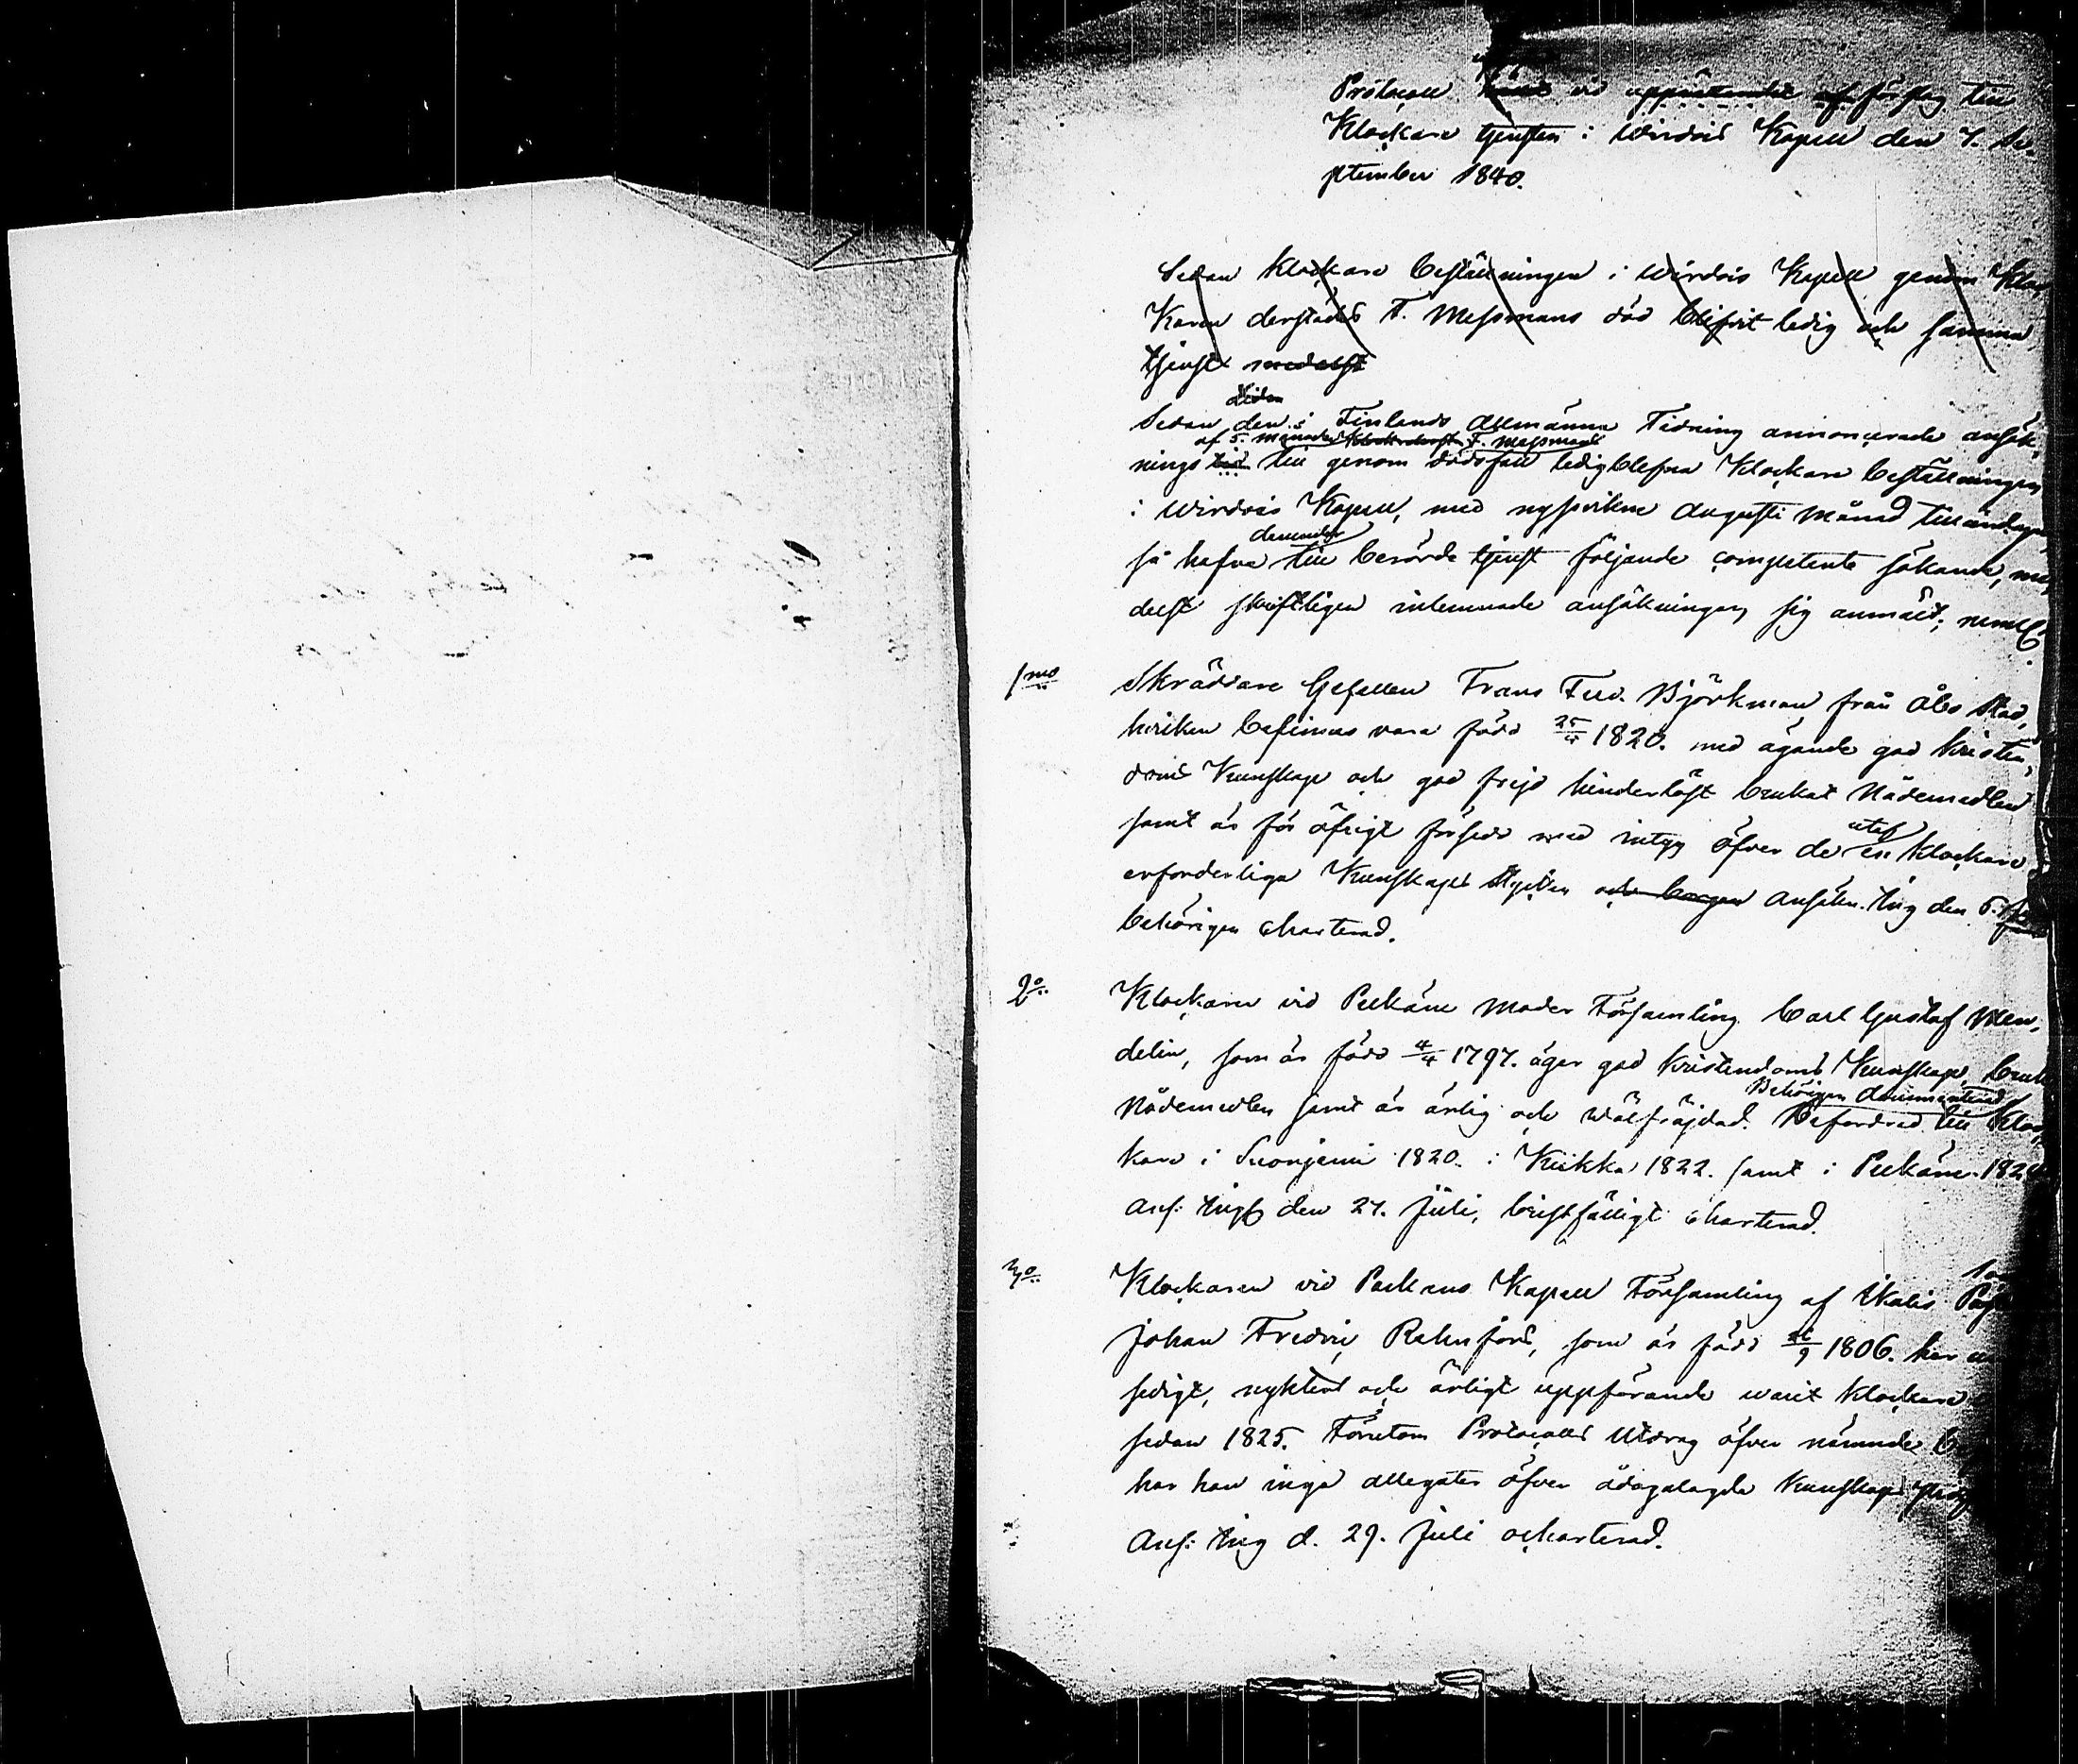 Protocoll hållit vid upprättandet af förslag till
Klockare tjensten i Wirdois Kapell den 7. Se-
ptember 1840.
Sedan Klockare beställningen i Wirdois Kapell genom Kloc
karen derstädes F. Messmans död blifvit ledig och samma
tjenst medelst
Sedan den i Finlands Allmänna Tidning annoncerade ansök-
af 5. månader F. Messmans
nings tid till genom dödsfall ledigblefna Klockare beställningen
i Wirdois Kapell, med nyssvikne Augusti månad tilländagått
så hafva till berörde tjenst följande competente sökande, me-
delst skriftligen inlemnade ansökningar, sig anmält; neml.
1mo
Skräddare Gesellen Frans Ferd. Björkman från Åbo Stad,
hvilken befinnes vara född 25/4 1820. med ägande god Kristen-
doms Kunskap och god frejd hinderlöst brukat Nådemedlen
samt är för öfrigt försedd med intyg öfver de
utaf
en Klockare
erforderliga Kunskaps stycken och borgen Ansökn. ing den 5.
behörigen charterad.
2o
Klockaren vid Pelkäne Moder Församling Carl Gustaf Wen-
delin, som är född 4/4 1797. äger god Kristendoms Kunskap, bruk
Behörigen documenterad
Nådemedlen samt är ärlig och wälfräjdad. Befordrad till Kloc
kare i Suonjemi 1820. i Kiikka 1822. samt i Pelkäne 182
Ans: ingf den 27. Juli, bristfälligt charterad.
3o
Klockaren vid Parkano Kapell Församling af Ikalis
Johan Fredric Rehnfors, som är född 26/9 1806. har
sedigt, nyktert och ärligt uppförande varit Klockare
sedan 1825. Förutom Protocolls Utdrag öfver nämnde
har han inga allegater öfver ådagalagda Kunskaps
Ans: ing d. 29. Juli ocharterad.